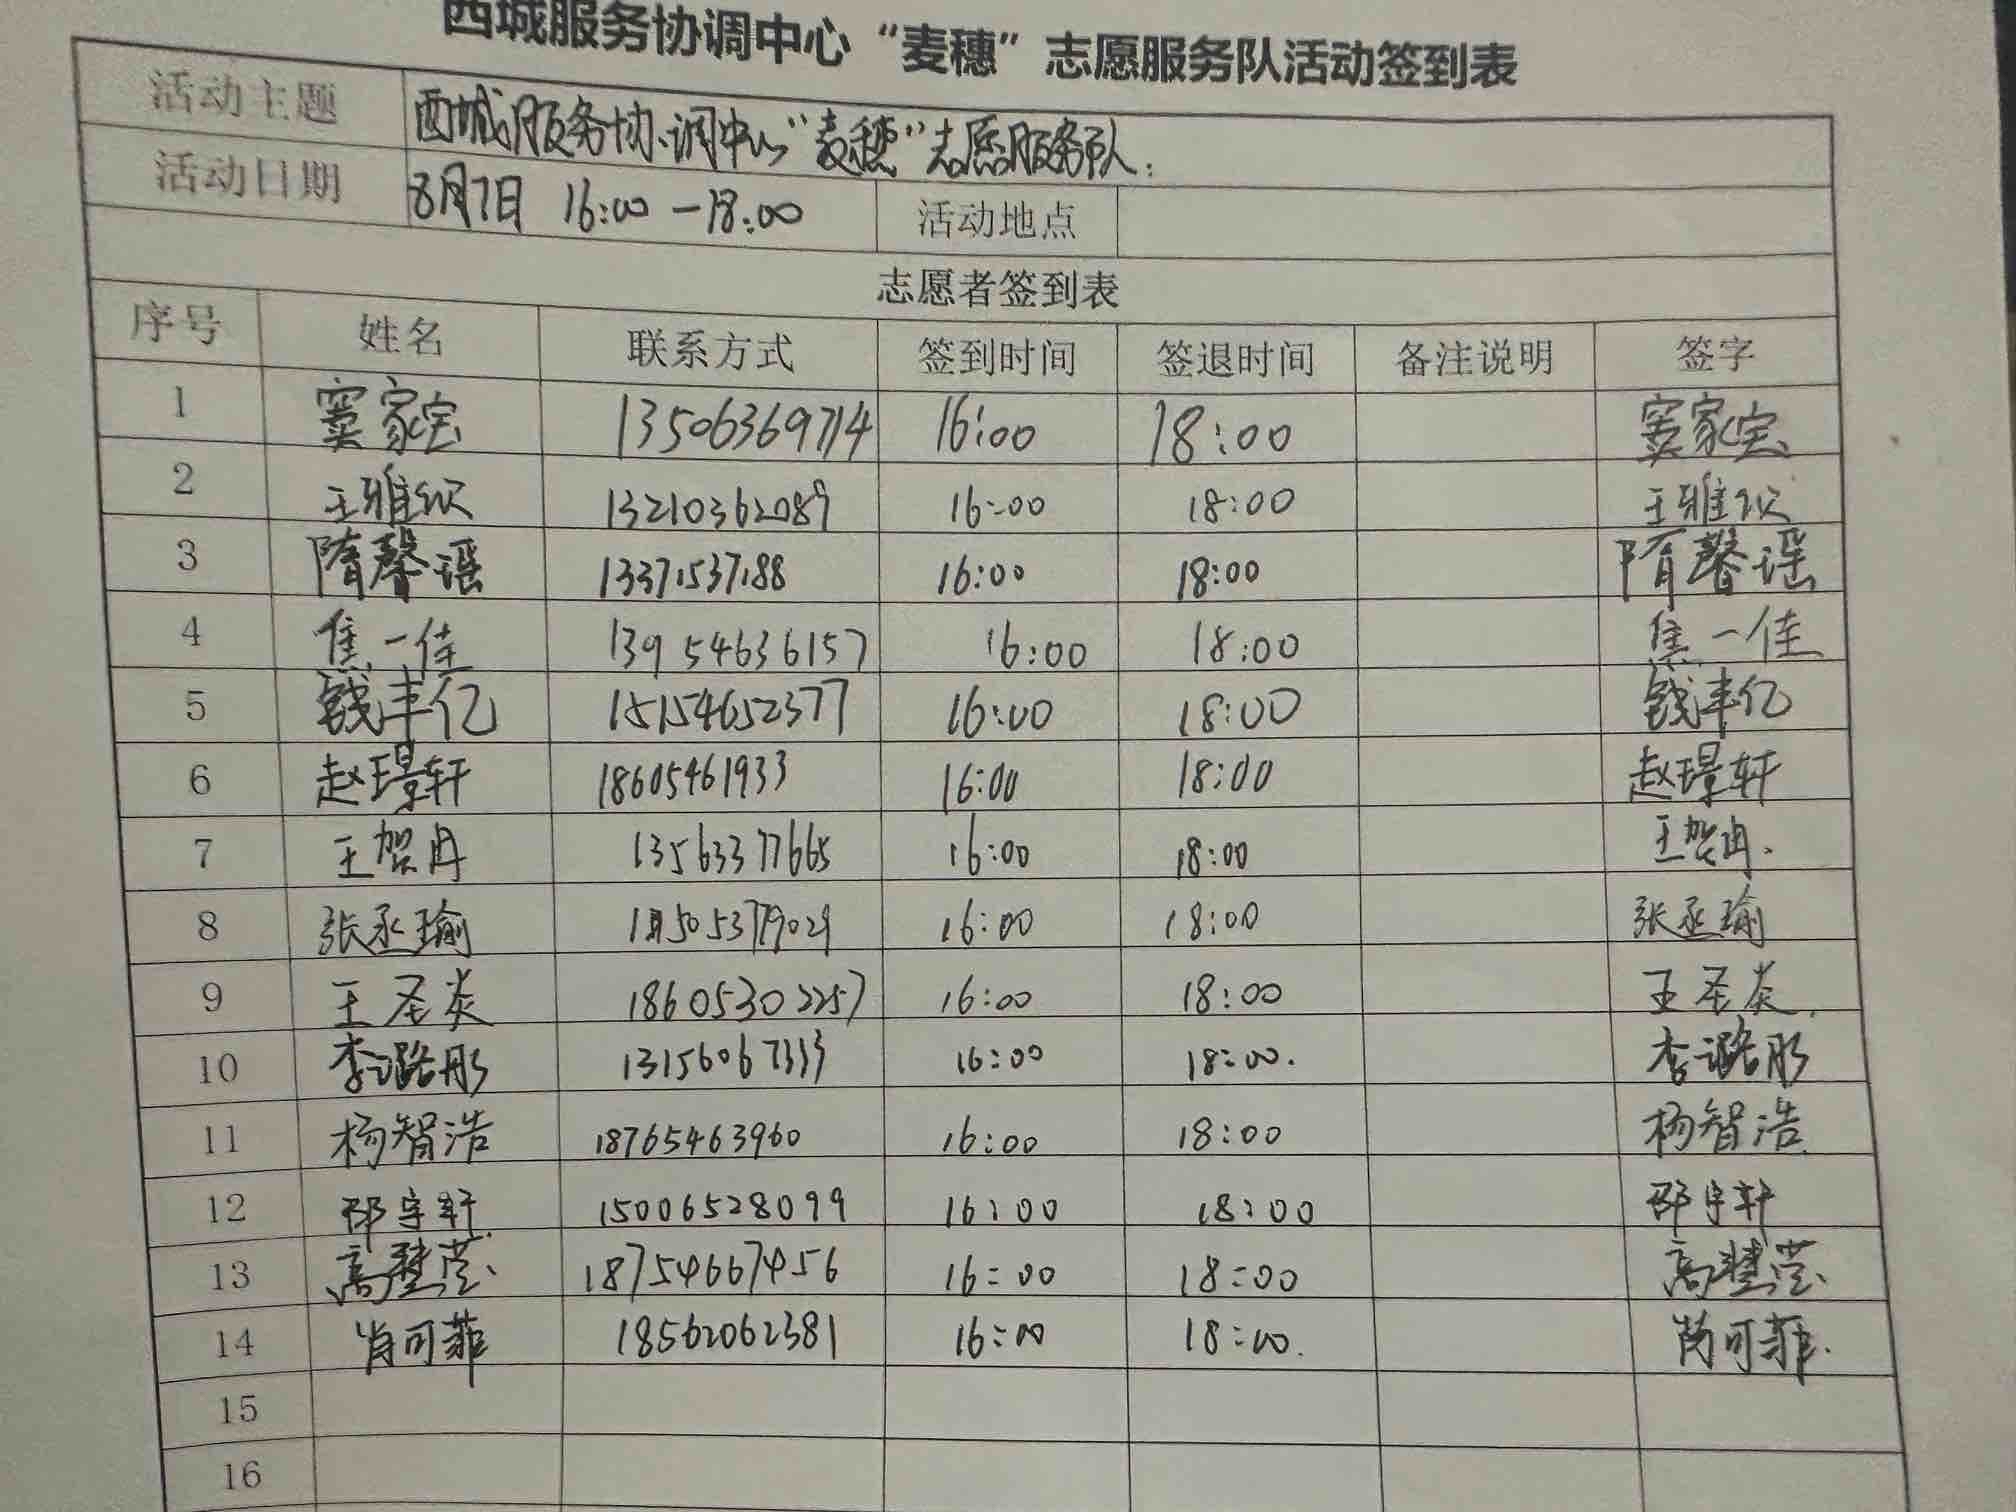 西城服务协调中心“麦穗”志愿服务队活动签到表
活动主题 西城服务协调中心“麦穗”志愿服务队.
活动日期 8月7日 16:00-18:00 活动地点
志愿者签到表
序号 姓名 联系方式 签到时间 签退时间 备注说明 签字
1 窦家宝 13506369714 16:00 18:00 窦家宝
2 王雅欣 13210362089 16:00 18:00 王雅欣
3 隋馨瑶 13371537188 16:00 18:00 隋馨瑶
4 焦一佳 13954636157 16:00 18:00 焦一佳
5 钱丰亿 15154652377 16:00 18:00 钱丰亿
6 赵璟轩 18605461933 16:00 18:00 赵璟轩
7 王贺冉 13563377665 16:00 18:00 王贺冉.
8 张丞瑜 16:00 18:00 张丞瑜
9 王圣炎 18605302257 16:00 18:00 王圣炎
10 李潞彤 13156067333 16:00 18:00. 李潞彤
11 杨智浩 18765463960 16:00 18:00 杨智浩
12 邵宇轩 15006528099 16:00 18:00 邵宇轩
13 高慧莹 18754667456 16:00 18:00 高慧莹
14 肖可菲 18562062381 16:00 18:00. 肖可菲.
15
16